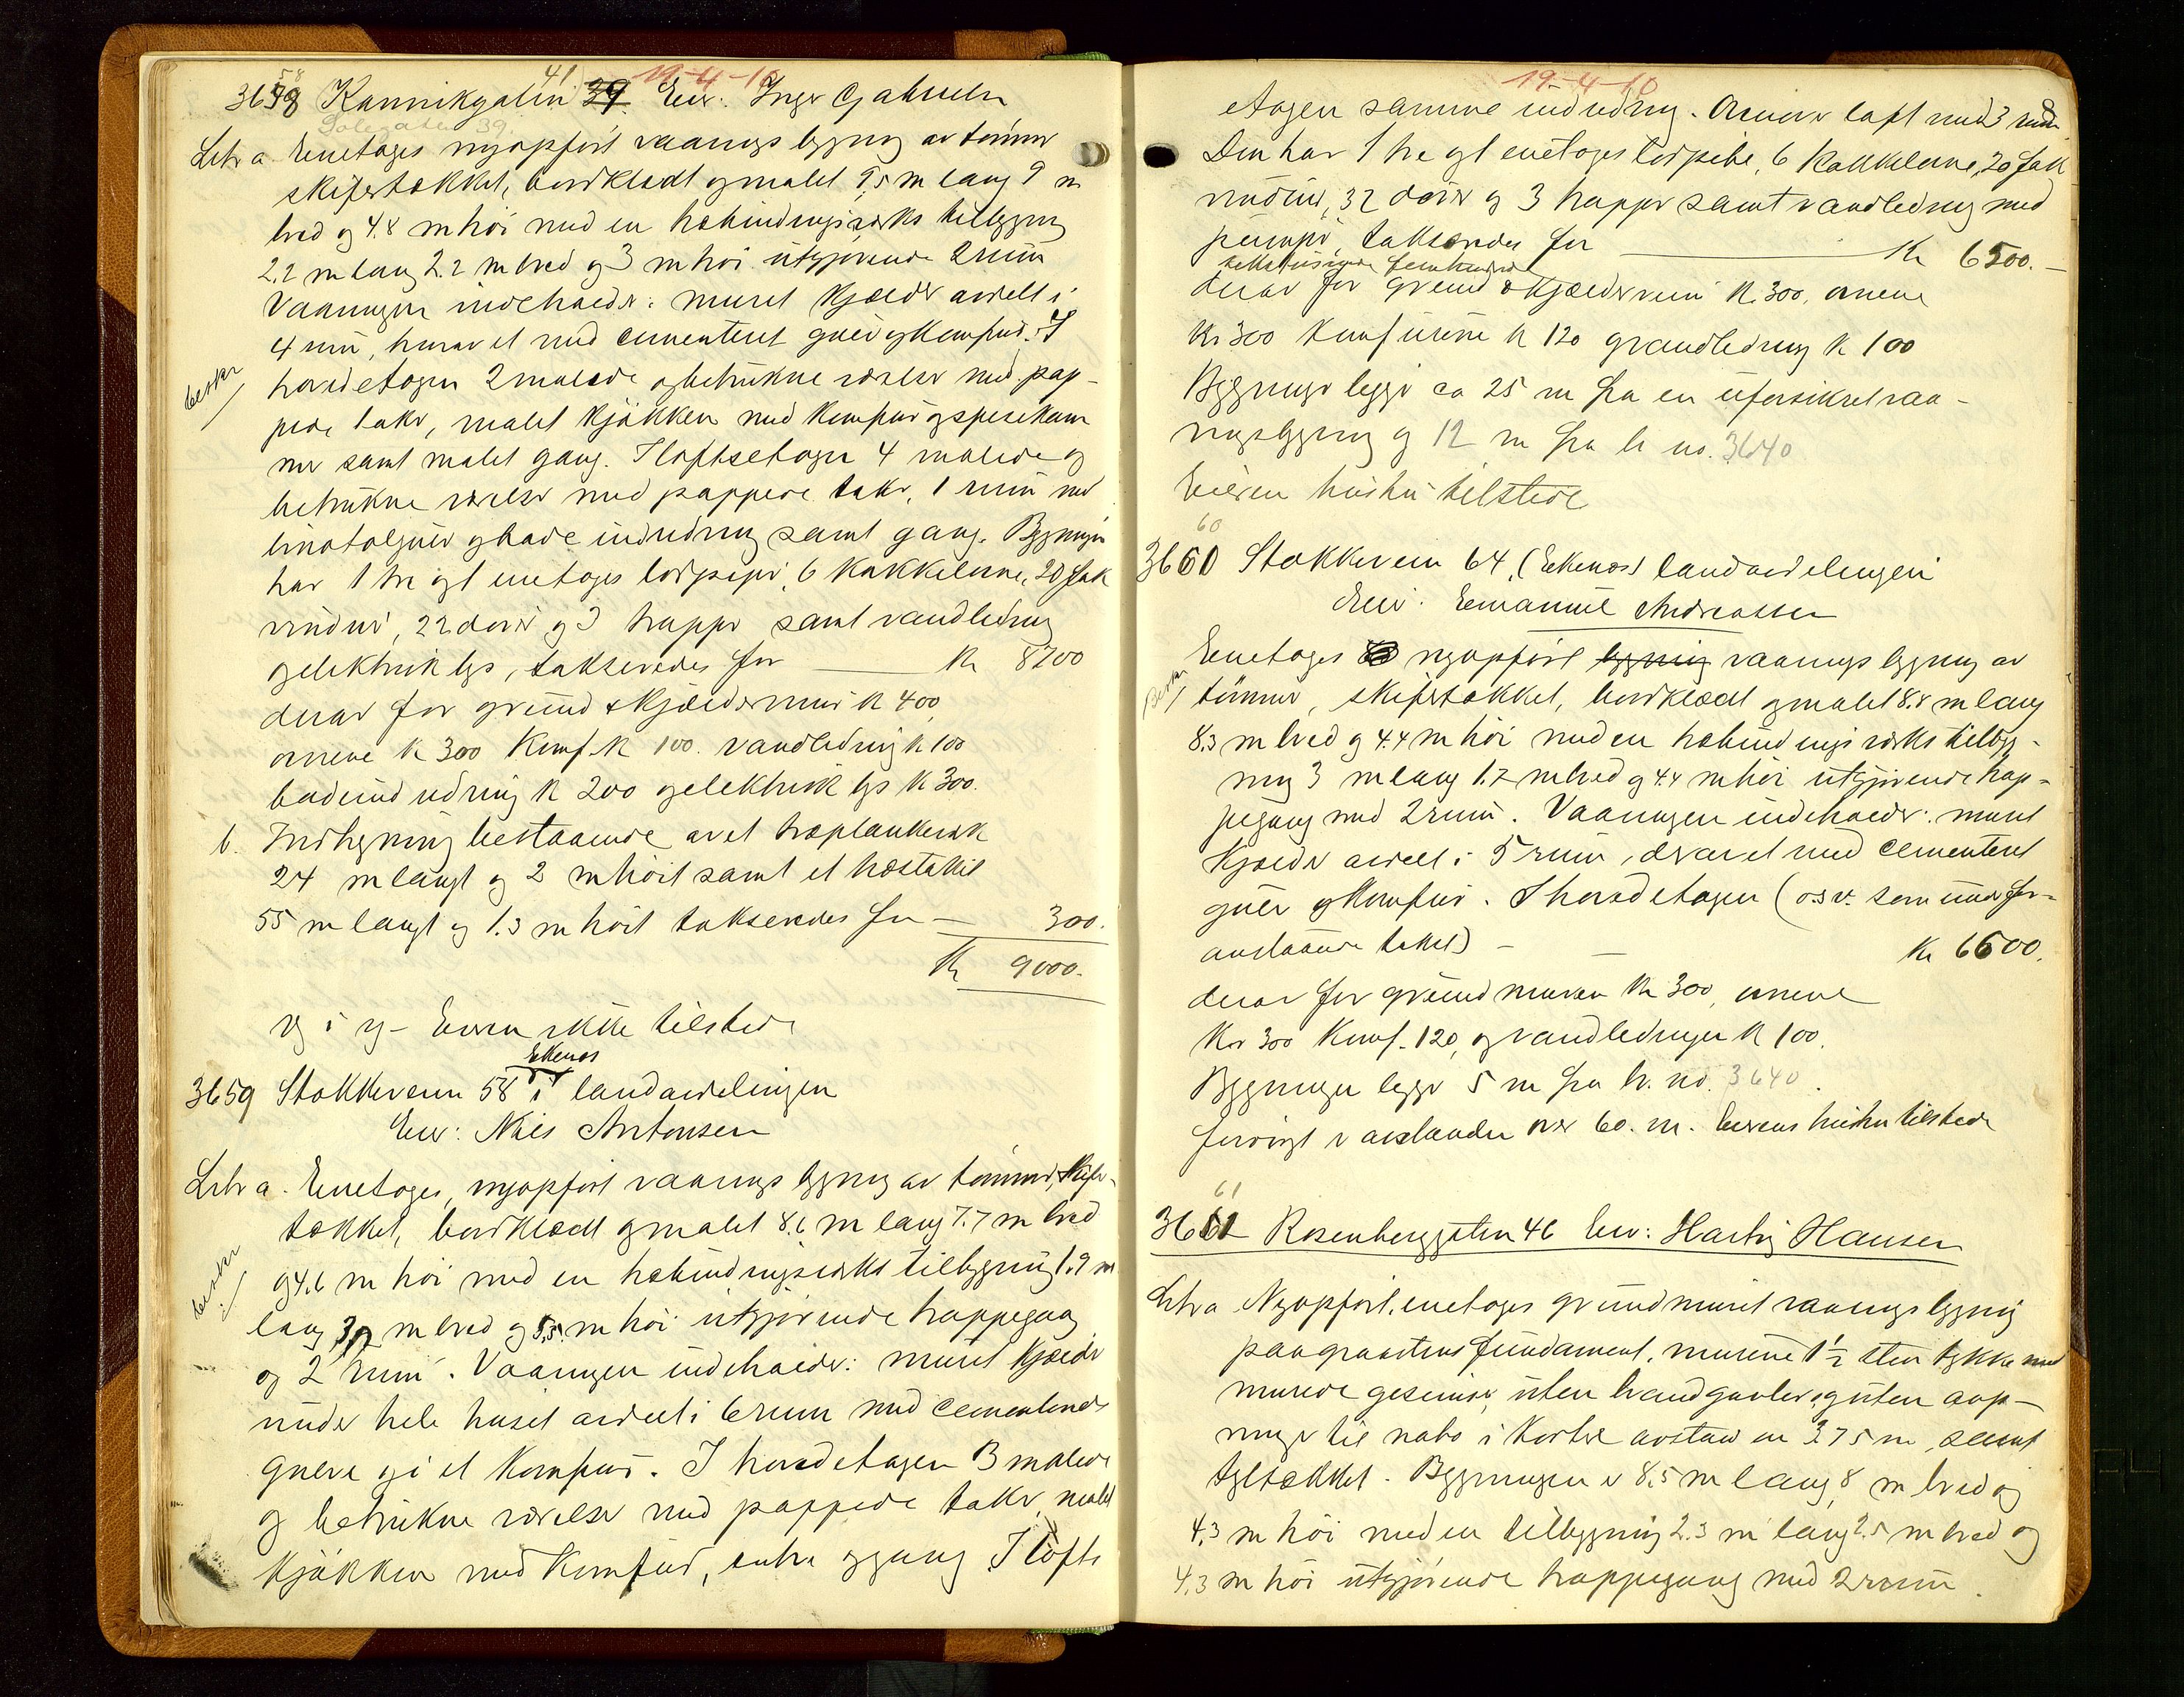 19-4-10
3658 Kannikgaten 41 39 Eier: Inger Gabrielsen
Solegaten 39.
Litr a. Enetages nyopført vaaningsbygning av tømmer
skifertækket, bordklædt og malet 9,5 m lang 9 m
bred og 4.8 m høi med en træbindingsverks tilbygning
2.2 m lang 2.2 m bred og 3 m høi utgjørende 2 rum
Vaaningen indeholder: muret kjælder avdelt i
4 rum, hvorav et med cementeret gulv og komfur. I
besker
hovedetagen 2 malede og betrukne værelser med pap-
pede taker, malet kjøkken med komfur og spisekam
mer samt malet gang. I loftsetagen 4 malede og
betrukne værelser med pappede taker, 1 rum med
linotolgulv og bade indredning samt gang. Bygningen
har 1 tre og 1 enetages lodpiper, 6 kakkelovne, 20 fak
vinduer, 22 dører og 3 trapper samt vandledning
og elektrik lys, takseredes for — Kr 8700
derav for grund & kjældermur kr 400,
ovnene kr 300 Komf. kr 100. vandledning kr 100
badeindredning kr 200 og elektrisk lys kr 300.
b. Indhegning bestaaende av et træplankeverk
24 m langt og 2 m høit samt et træstakit
55 m langt og 1.3 m høit takseredes for — 300.
Kr 9000.
Eieren ikke tilstede
Ekenes
3659 Stokkaveien 58 i landavdelingen
Eier: Nils Antonsen
Litr a. Enetages, nyopført vaaningsbygning av tømmer, skifer-
tækket, bordklædt og malet 8.6 m lang 7.7 m bred
besker
og 4.6 m høi med en træbindingsverks tilbygning 1.9 m
lang m bred og 5.5 m høi utgjørende trappegang
og 2 rum. Vaaningen indeholder: muret kjælder
under hele huset avdelt i 6 rum med cementerede
gulve og i et komfur. I hovedetagen 3 malede
og betrukne værelser med pappede taker, malet
kjøkken med komfur, entre og gang. I lofts
19-4-10
etagen samme indredning. Øverst loft med 3 rum
Den har 1 tre og 1 enetages lodpibe, 6 Kakkelovne, 20 fak
vinduer, 32 dører og 3 trapper samt vandledning med
pumpe, takseredes for — Kr 6500.—
sekstusinde femhundrede
derav for grund & kjældermur kr. 300, ovnene
kr 300 komfurene kr 120 og vandledning kr 100
Bygningen ligger ca 25 m fra en uforsikret vaa-
ningsbygning og 12 m fra br no. 3640
Eieren hustru tilstede
60
3660 Stokkaveien 64, (Ekenes) landavdelingen
Eier: Emanuel Andreassen
Enetages nyopført bygning vaaningsbygning av
Besker
tømmer, skifertækket, bordklædt og malet 8.8 m lang
8.3 m bred og 4.4 m høi med en træbindingsverks tilbyg-
ning 3 m lang 1.7 m bred og 4.4 m høi utgjørende trap-
pegang med 2 rum. Vaaningen indeholder: muret
kjælder avdelt i 5 rum, derav et med cementeret
gulv og komfur. I hovedetagen (o.s.v. som under for-
anstaaende takst) — Kr 6600.
derav for grundmuren kr 300, ovnene
kr 300 Komf. 120, og vandledningen kr 100.
Bygningen ligger 5 m fra br. no. 3640.
forøvrigt i avstander over 60. m. Eierens hustru tilstede
61
3661 Rosenberggaten 46 Eier: Hartvig Hansen
Litr a Nyopført, enetages grundmuret vaaningsbygning
paa granitens fundament, murene 1½ sten tykke med
murede gesimser, uten brandgavler og uten aap-
ninger til nabo i kortere avstand en 3.75 m, samt
tegltækket. Bygningen er 8.5 m lang, 8 m bred og
4.3 m høi med en tilbygning 2.3 m lang 2.5 m bred og
4.3 m høi utgjørende trappegang med 2 rum.